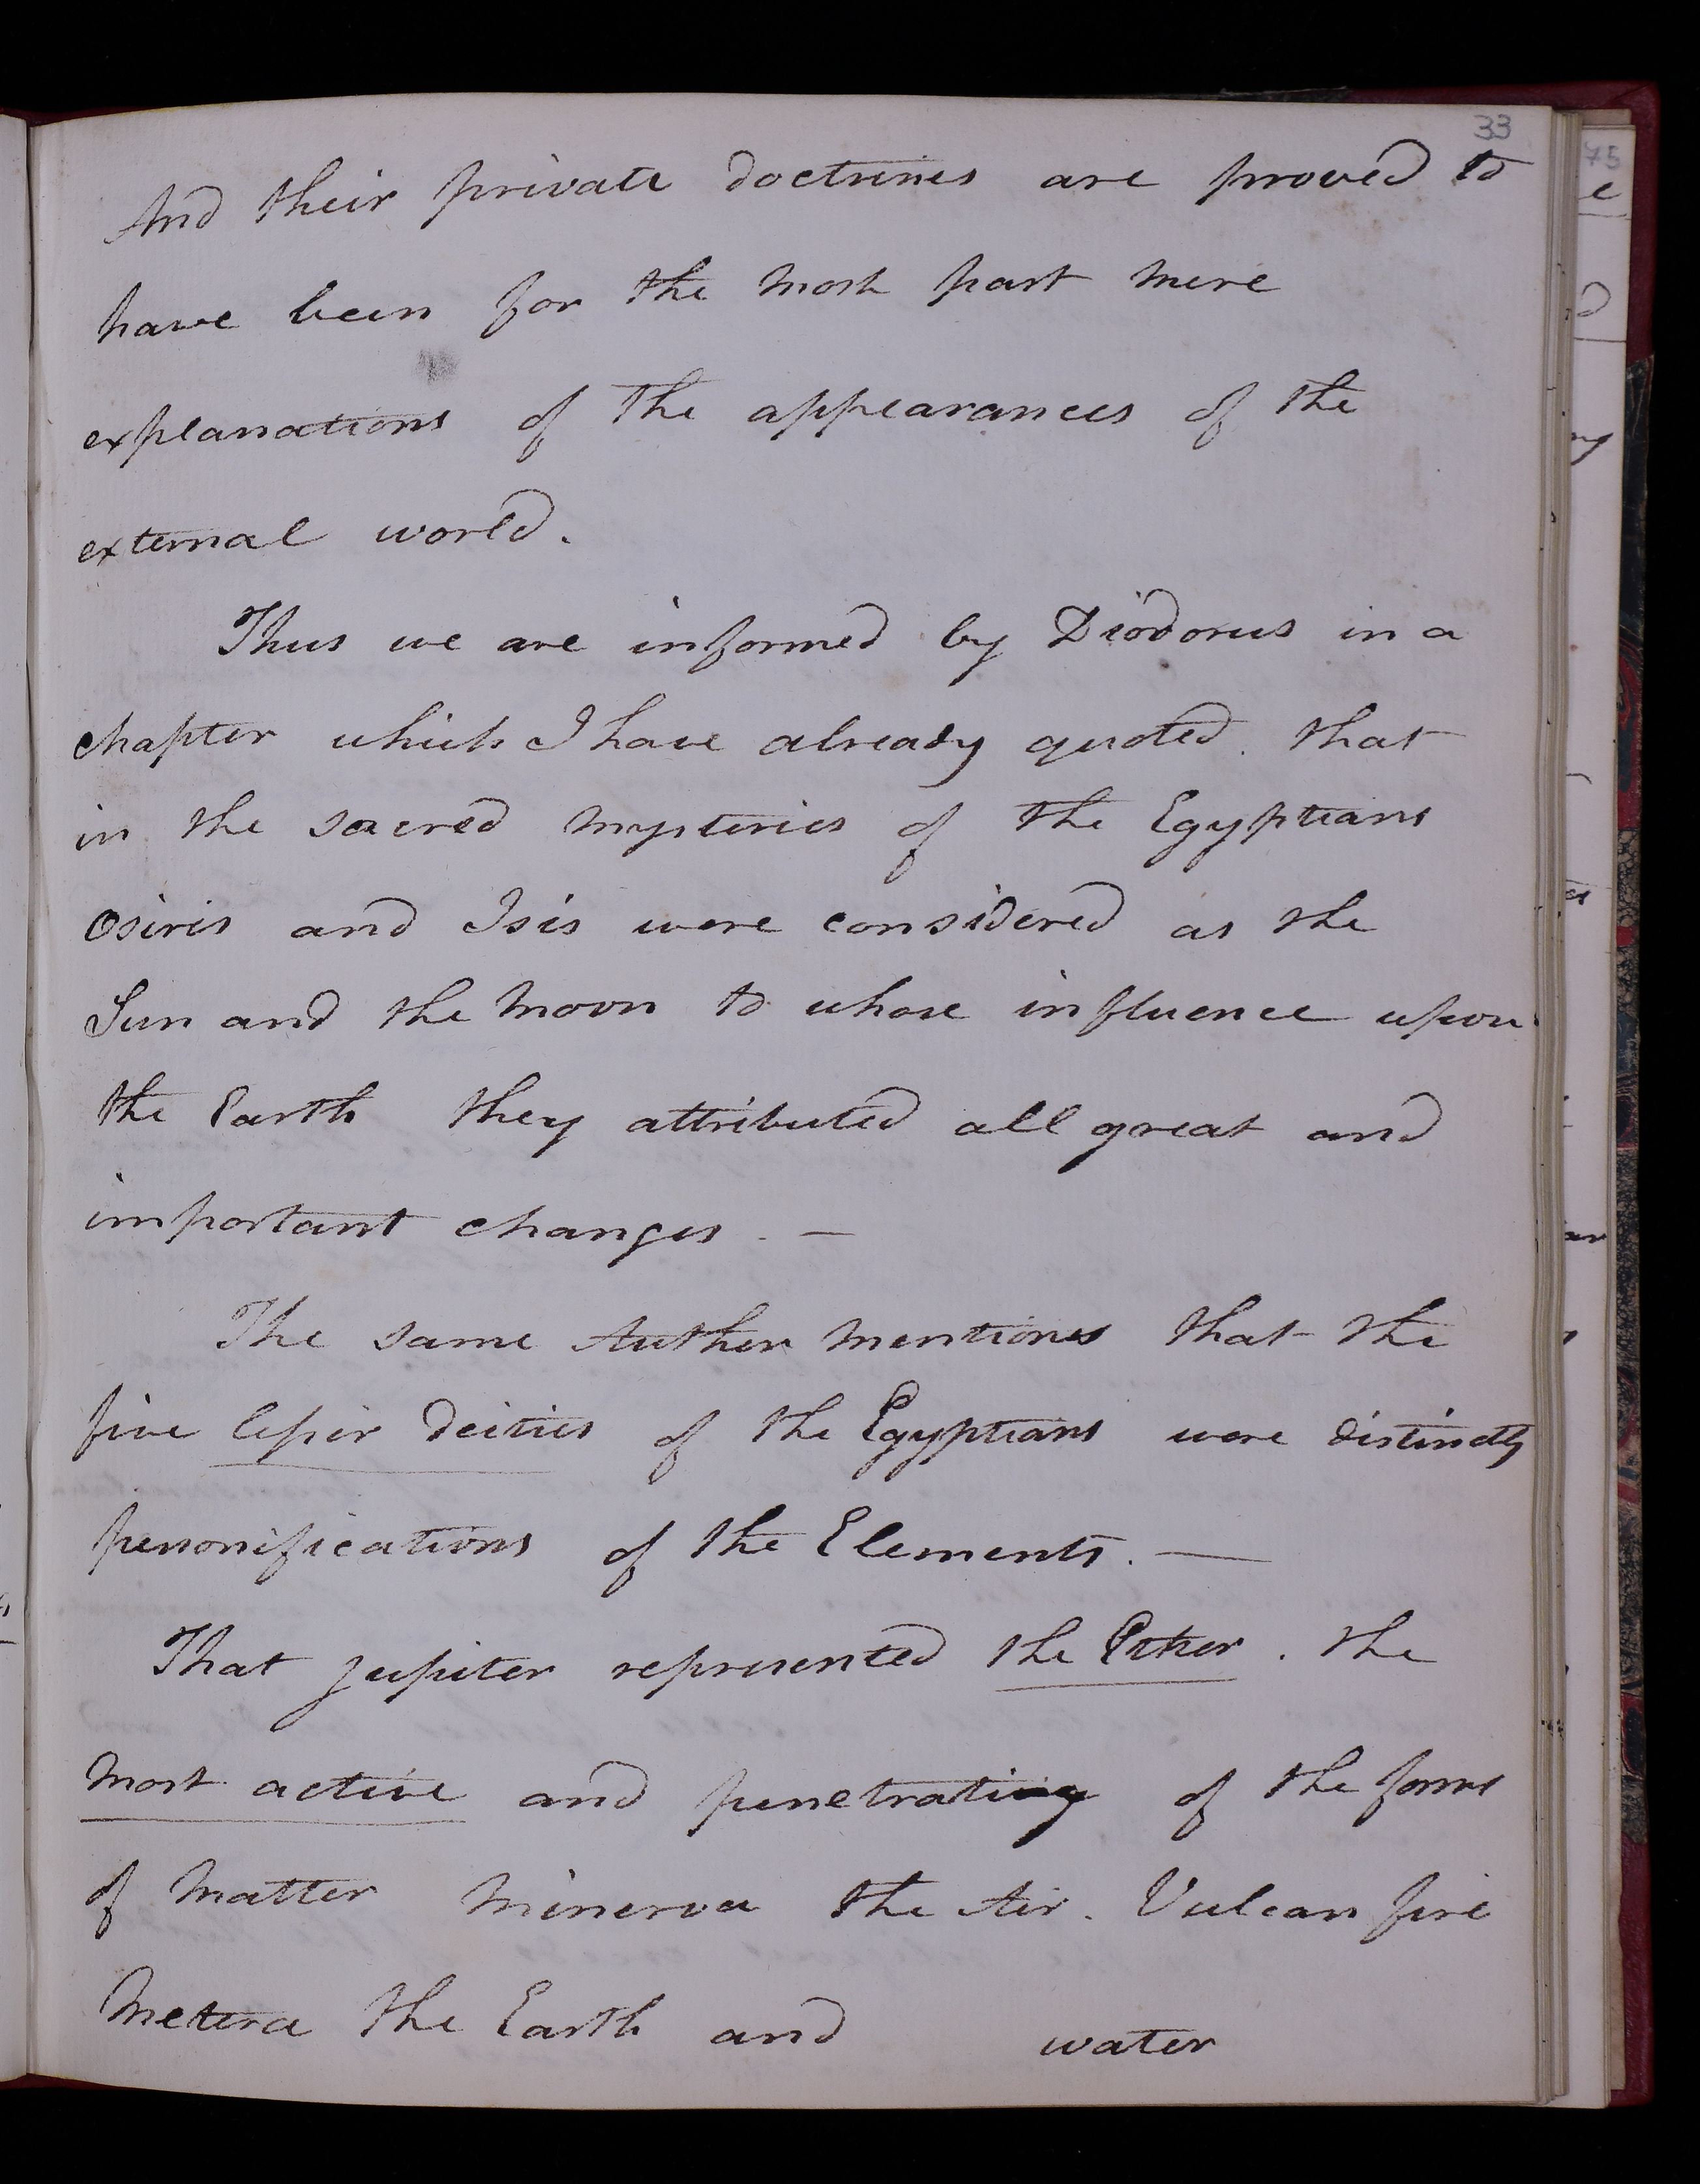 33
And their private doctrines are proved to
have been for the most part mere
explanations of the appearances of the
external world.
Thus we are informed by Diodorus in a
chapter which I have already quoted. that
in the sacred mysteries of the Egyptians
Osiris and Isis were considered as the
Sun and the Moon to whose influence upon
the Earth they attributed all great and
important changes. —
The same Author mentions that the
five lesser Deities of the Egyptians were distinctly
personifications of the Elements. —
That Jupiter represented the Ether. the
most active and penetrating of the forms
of Matter Minerva the Air. Vulcan fire
Metera the Earth and water
75